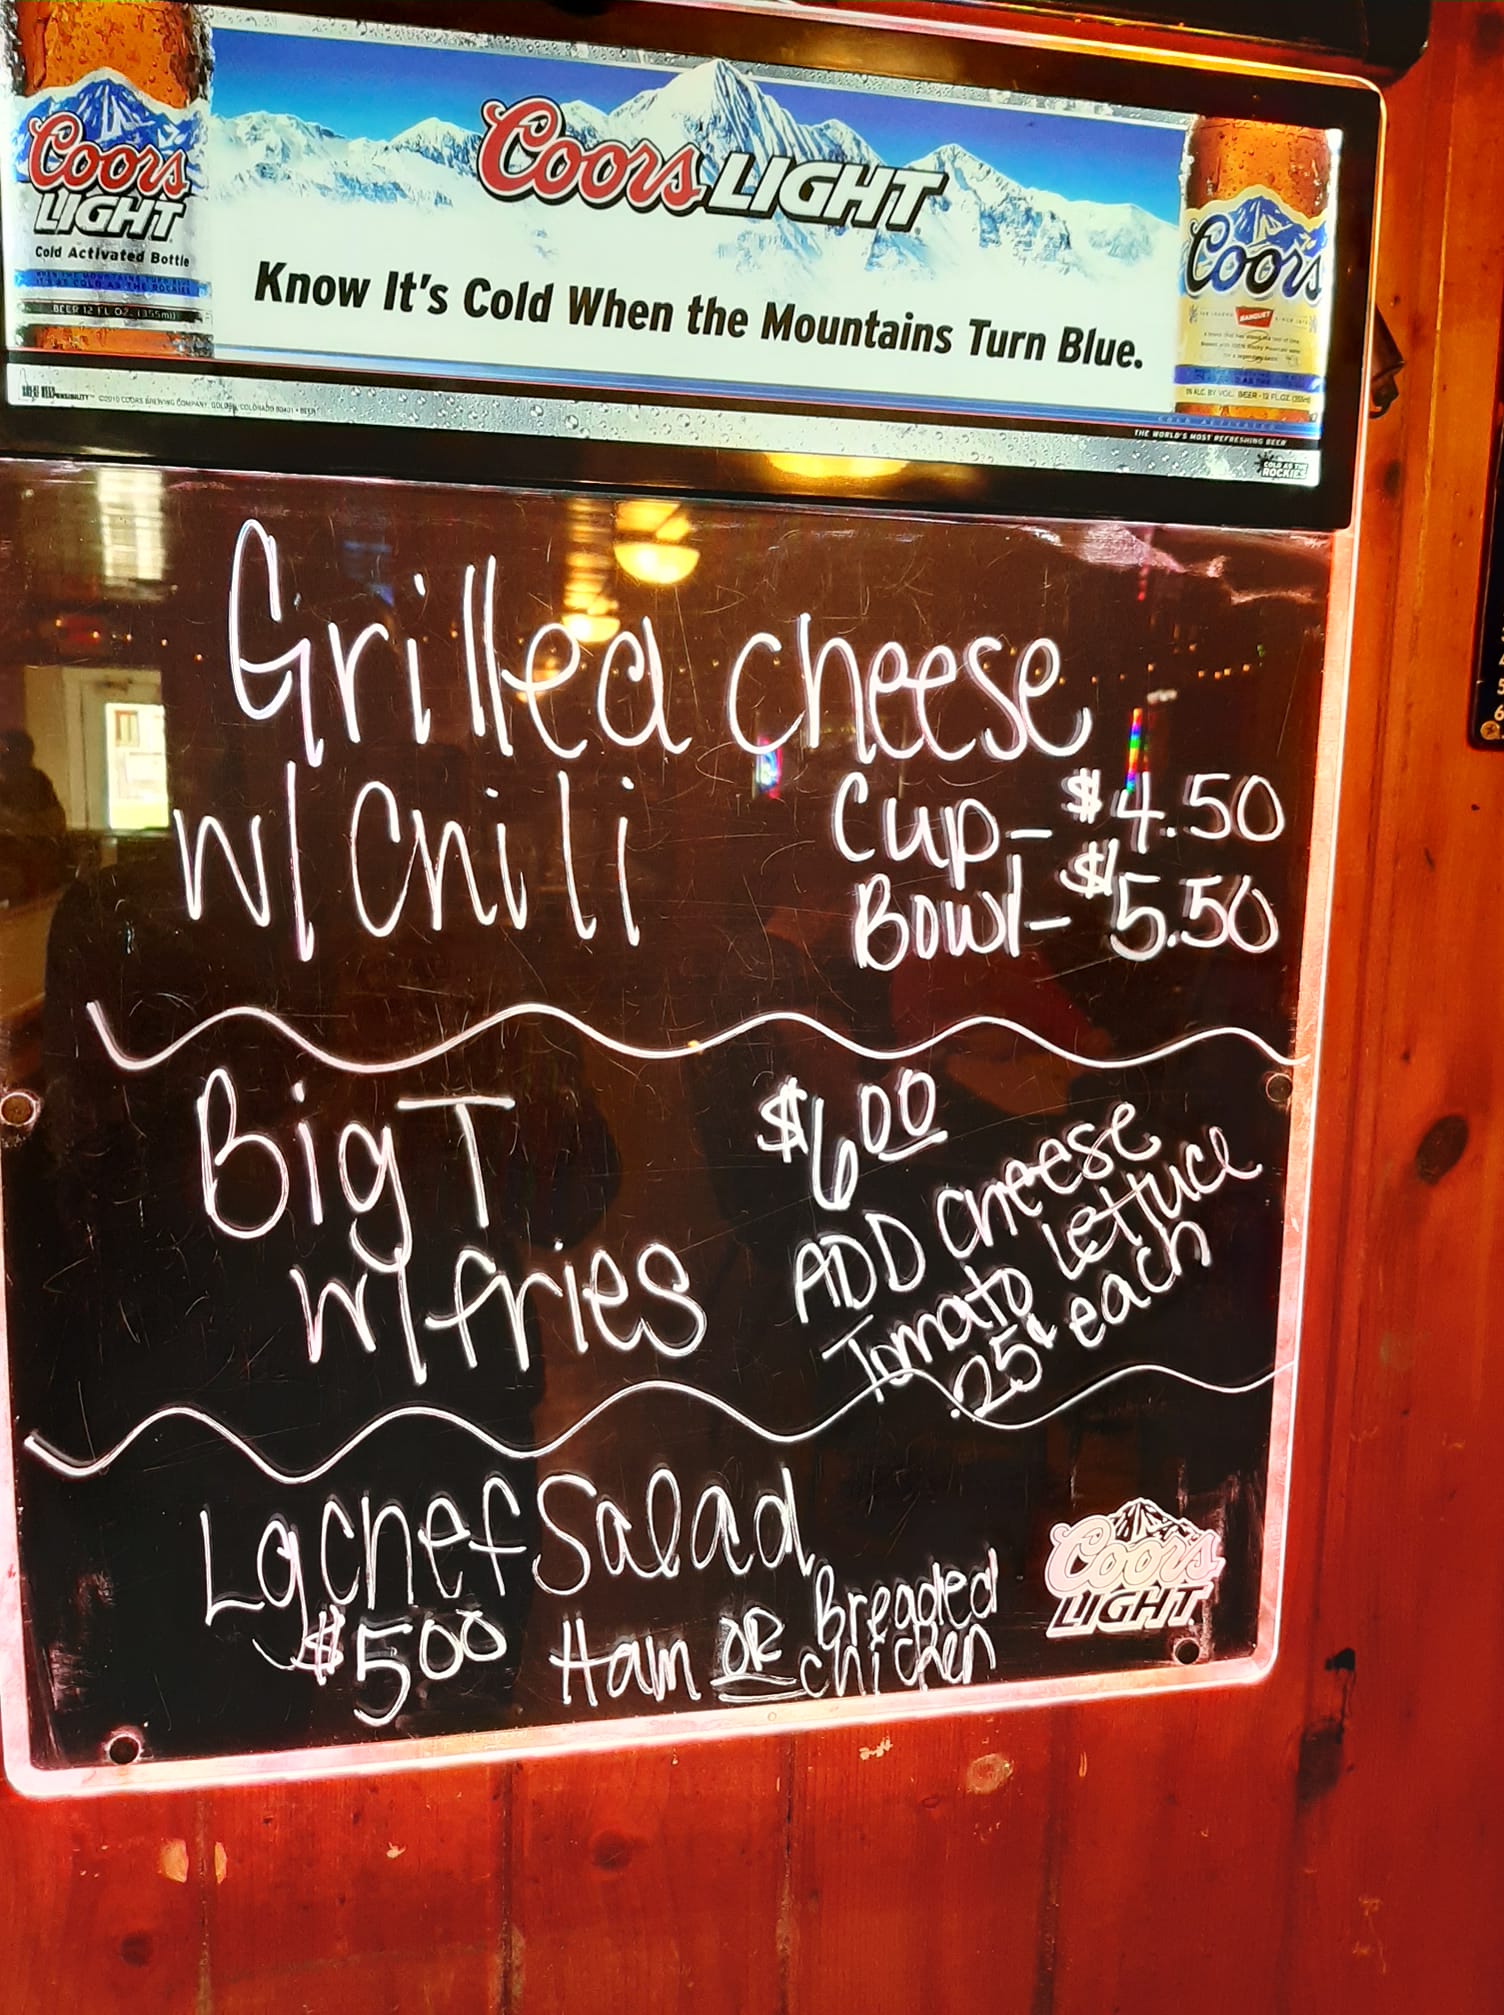 Coors LIGHT
Cold Activated Bottle
BEER 12 FL OZ. (355ml)
Coors LIGHT
Know It's Cold When the Mountains Turn Blue.
Coors
BANQUET
©2010 COORS BREWING COMPANY, GOLDEN, COLORADO 80401 • BEER
THE WORLD'S MOST REFRESHING BEER
COLD AS THE
ROCKIES
Grilled cheese
w/ Chili
Cup- $4.50
Bowl- $5.50
Big T
w/ fries
$6.00
ADD cheese
Tomato Lettuce
.25¢ each
Lg chef Salad
$5.00 Ham OR Breaded
chicken
Coors
LIGHT